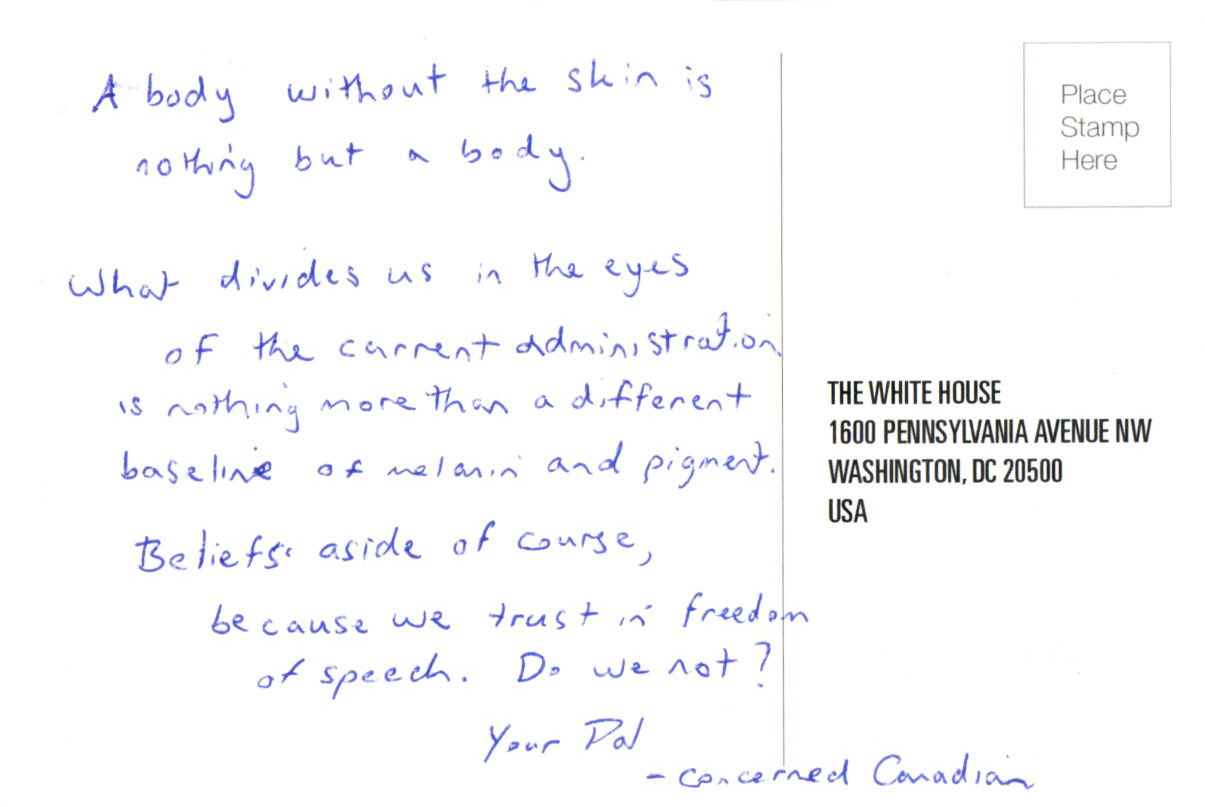 A body without the skin is
nothing but a body.
What divides us in the eyes
of the current administration
is nothing more than a different
baseline of melanin and pigment.
Beliefs aside of course,
because we trust in freedom
of speech. Do we not?
Your Pal
- concerned Canadian
Place
Stamp
Here
THE WHITE HOUSE
1600 PENNSYLVANIA AVENUE NW
WASHINGTON, DC 20500
USA